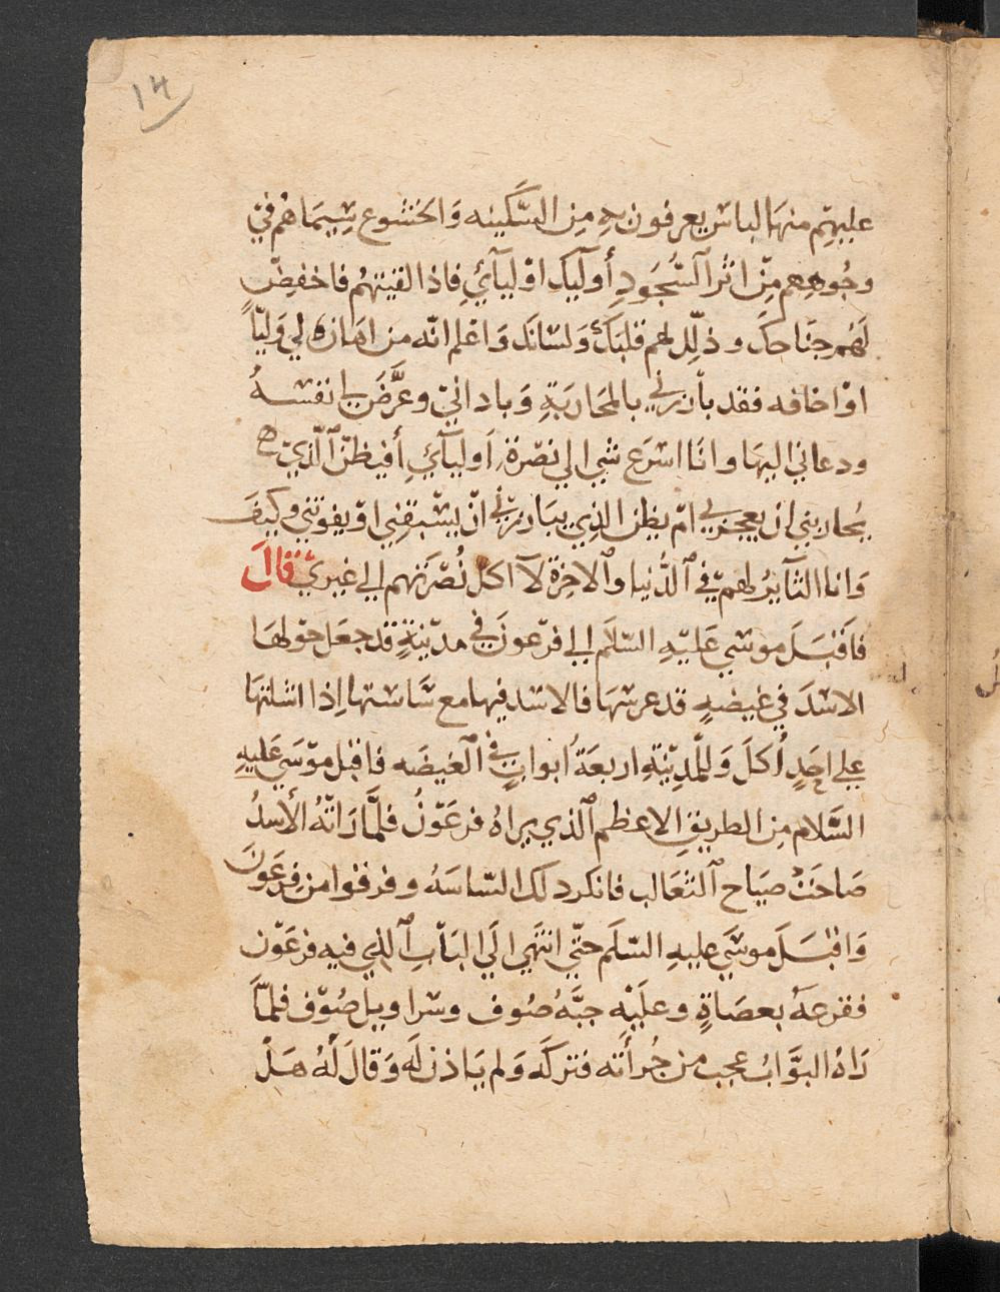 ١٣
عليهم منها لباس يعرفون به من السكينه والخشوع سيماهم في
وجوههم من اثر السجود أوليك اوليآئي فاذا لقيتهم فاخفض
لهم جناحك وذلل لهم قلبك ولسانك واعلم انه من اهان لي وليًا
او اخافه فقد بارزني بالمحاربة وباداني وعرّض لي نفسهُ
ودعاني اليها وانا اسرع شي الي نصرة اوليآئي أفيظن الذي
يحاربني ان يعجزني ام يظن الذي يبارزني ان يسبقني او يفوتني وكيف
وانا الثآير لهم في الدُّنيا والاخرة لآ اكل نُصرتهم الي غيري قال
فاقبل موسي عليه السلم الي فرعون في مدينةٍ قد جعل حولها
الاسد في غيضهٍ قد غرسها فالاسد فيها مع سَاستها اِذا اشلتها
علي احدٍ أُكل وللمدينة اربعة ابوابٍ في الغيضه فاقبل موسي عليه
السّلام من الطريق الاعظم الذي يراهُ فرعونُ فلمّا راتهُ الأسدُ
صاحت صياح الثعالب فانكر ذلك السّاسهُ وفرقوا من فرعون
واقبل موسي عليه السلم حتّي انتهي الي الباب الذي فيه فرعون
فقرعهُ بعصاةٍ وعليه جبّهُ صُوف وسراويل صُوف فلمّا
راهُ البوّابُ عجب من جُرأته فتركه ولم ياذن له وقال لهُ هل